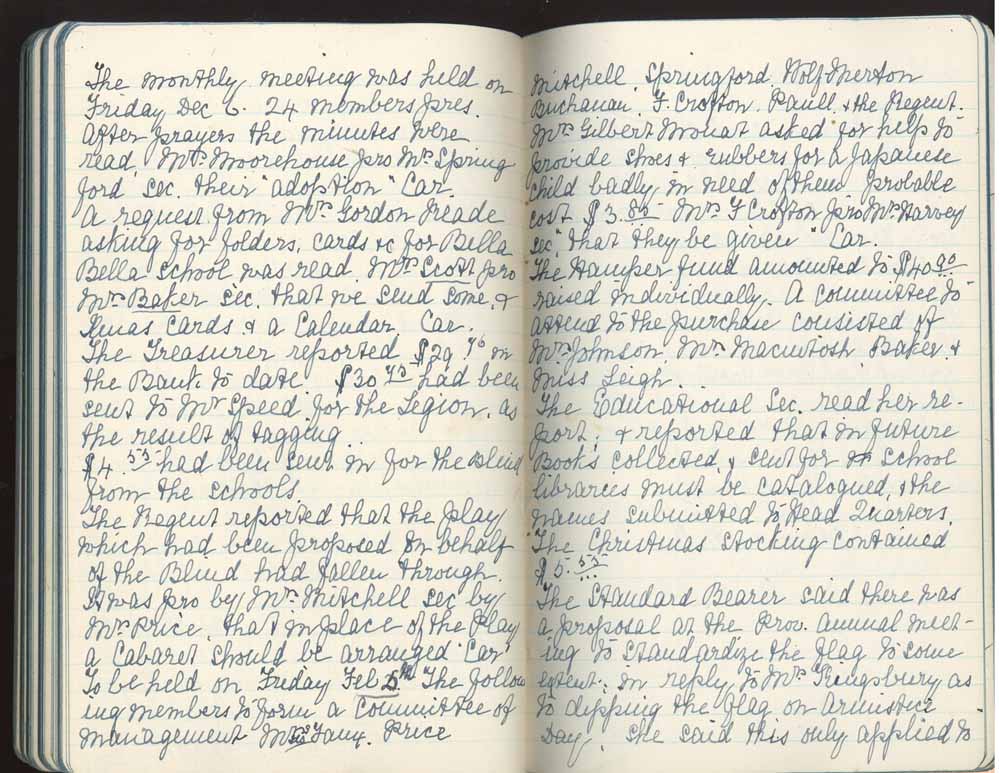 The monthly meeting was held on
Friday Dec 6. 24 members pres.
After prayers the minutes were
read, Mrs Moorehouse pro Mrs Spring
ford sec. their "adoption" Car.
A request from Mrs Gordon Reade
asking for folders, cards &c for Bella
Bella school was read. Mrs Scott pro
Mrs Baker sec. that we send some, &
Xmas cards & a Calendar, Car.
The Treasurer reported $29.76 in
the Bank to date. $30.75 had been
sent to Mr Speed for the Legion, as
the result of tagging.
$4.55 had been sent in for the Blind
from the schools.
The Regent reported that the play
which had been proposed on behalf
of the Blind had fallen through.
It was pro by Mrs Mitchell sec by
Mrs Price, that in place of the Play
a Cabaret should be arranged "Car"
To be held on Friday Feb The follow
ing members to form a Committee of
Management Price
Mitchell, Springford, Wolfmerton
Buchanan. F. Crofton. Paull, & the Regent.
Mrs Gilbert Mouat asked for help to
provide shoes & rubbers for a Japanese
child badly in need of them probable
cost $3.85 Mrs F Crofton pro Mrs Harvey
sec "that they be given" Car.
The Hamper fund amounted to $40.90
raised individually. A committee to
attend to the purchase consisted of
Mrs Johnson, Mrs Macintosh, Baker, &
Miss Leigh.
The Educational Sec. read her re-
port, & reported that in future
Books collected, & sent for school
libraries must be catalogued, & the
names submitted to Head Quarters.
The Christmas Stocking contained
$5.53
The Standard Bearer said there was
a proposal at the Prov. annual meet-
ing to standardize the flag to some
extent. In reply to Mrs Kingsbury as
to dipping the flag on Armistice
Day, she said this only applied to